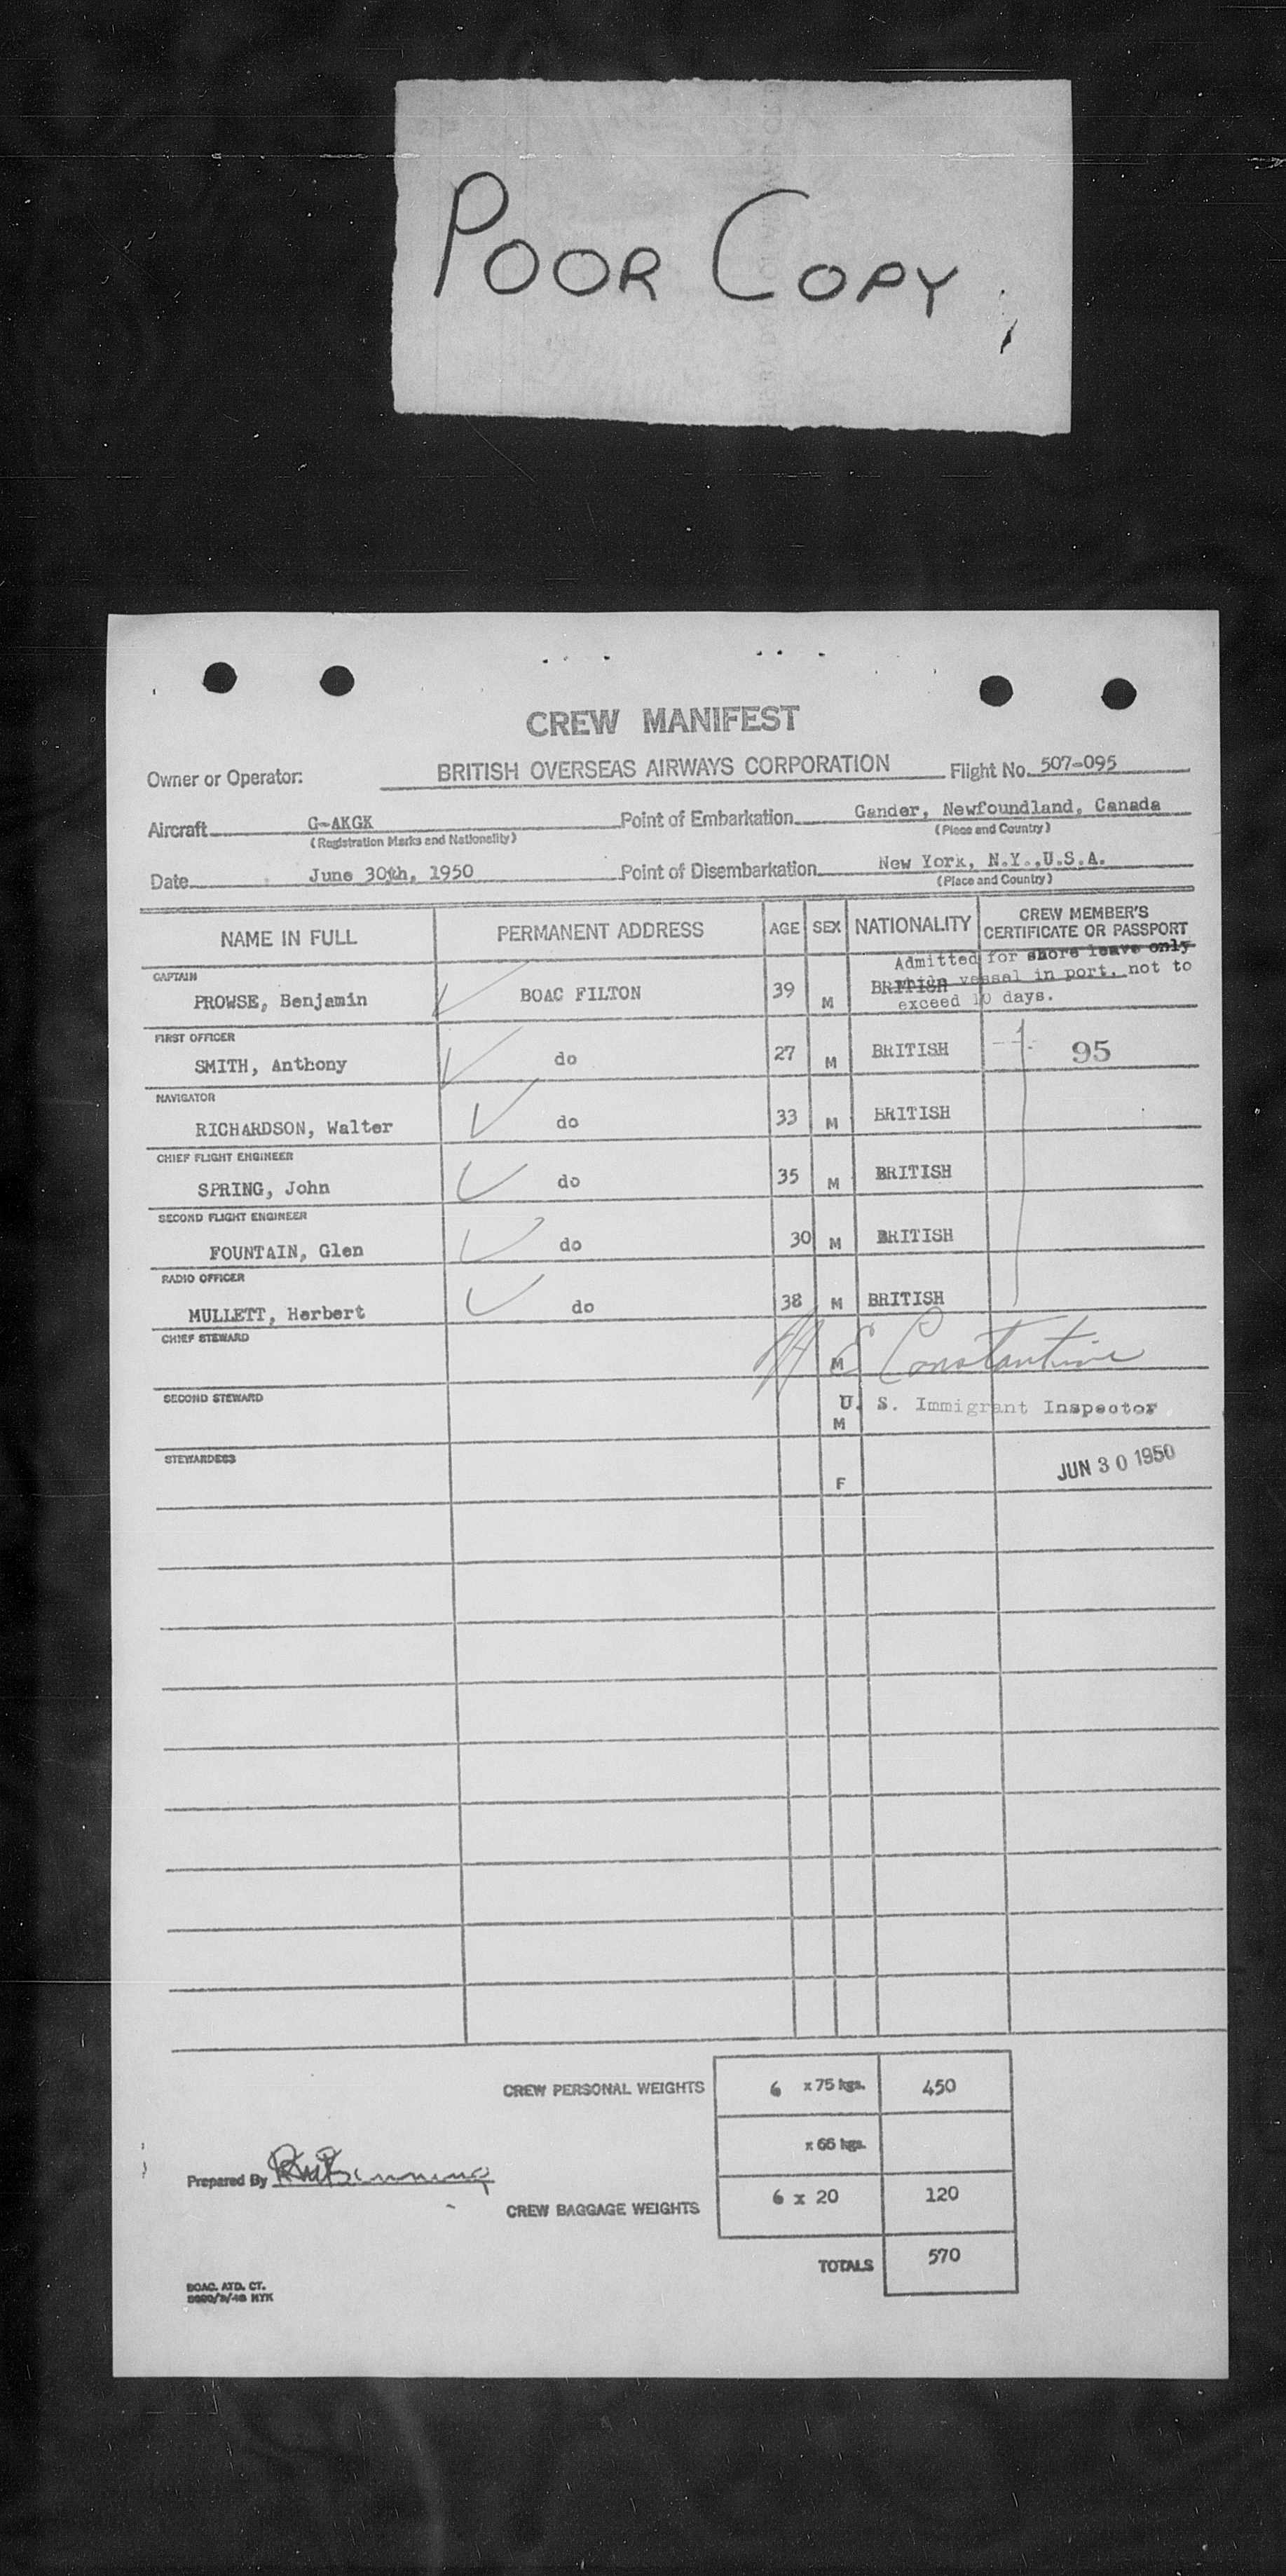 POOR COPY
CREW MANIFEST
Owner or Operator: BRITISH OVERSEAS AIRWAYS CORPORATION Flight No. 507-095
Aircraft G-AKGK Point of Embarkation Gander, Newfoundland, Canada
(Registration Marks and Nationality) (Place and Country)
Date June 30th, 1950 Point of Disembarkation New York, N.Y.,U.S.A.
(Place and Country)
NAME IN FULL PERMANENT ADDRESS AGE SEX NATIONALITY CREW MEMBER'S CERTIFICATE OR PASSPORT
Admitted for shore leave only
while vessel in port, not to
exceed 10 days.
CAPTAIN
PROWSE, Benjamin BOAC FILTON 39 M BRITISH
FIRST OFFICER
SMITH, Anthony do 27 M BRITISH 95
NAVIGATOR
RICHARDSON, Walter do 33 M BRITISH
CHIEF FLIGHT ENGINEER
SPRING, John do 35 M BRITISH
SECOND FLIGHT ENGINEER
FOUNTAIN, Glen do 30 M BRITISH
RADIO OFFICER
MULLETT, Herbert do 38 M BRITISH
CHIEF STEWARD
M Constantine
SECOND STEWARD
U. S. Immigrant Inspector
M
STEWARDESS
JUN 30 1950
F
CREW PERSONAL WEIGHTS 6 x 75 kgs. 450
x 66 kgs.
Prepared By
CREW BAGGAGE WEIGHTS 6 x 20 120
TOTALS 570
BOAC. ATD. CT.